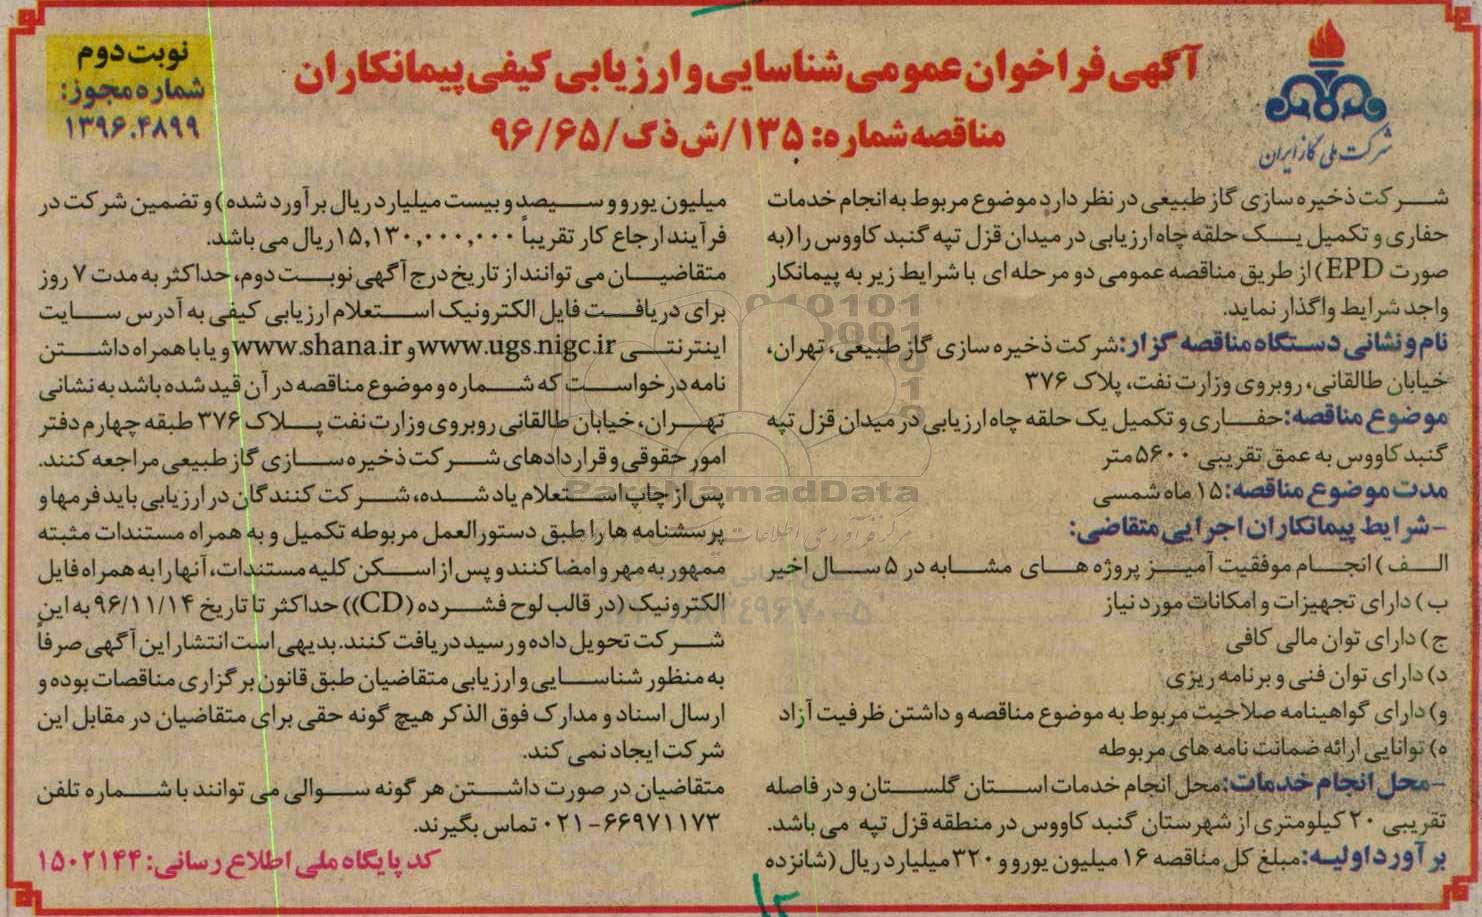 شرکت ملی گاز ایران
آگهی فراخوان عمومی شناسایی و ارزیابی کیفی پیمانکاران
مناقصه شماره: ۱۳۵/ش‌ذگ/۹۶/۶۵
نوبت دوم
شماره مجوز:
۱۳۹۶.۴۸۹۹
شرکت ذخیره سازی گاز طبیعی در نظر دارد موضوع مربوط به انجام خدمات
حفاری و تکمیل یک حلقه چاه ارزیابی در میدان قزل تپه گنبد کاووس را (به
صورت EPD) از طریق مناقصه عمومی دو مرحله ای با شرایط زیر به پیمانکار
واجد شرایط واگذار نماید.
نام و نشانی دستگاه مناقصه گزار: شرکت ذخیره سازی گاز طبیعی، تهران،
خیابان طالقانی، روبروی وزارت نفت، پلاک ۳۷۶
موضوع مناقصه: حفاری و تکمیل یک حلقه چاه ارزیابی در میدان قزل تپه
گنبد کاووس به عمق تقریبی ۵۶۰۰ متر
مدت موضوع مناقصه: ۱۵ ماه شمسی
-شرایط پیمانکاران اجرایی متقاضی:
الف) انجام موفقیت آمیز پروژه های مشابه در ۵ سال اخیر
ب) دارای تجهیزات و امکانات مورد نیاز
ج) دارای توان مالی کافی
د) دارای توان فنی و برنامه ریزی
و) دارای گواهینامه صلاحیت مربوط به موضوع مناقصه و داشتن ظرفیت آزاد
ه) توانایی ارائه ضمانت نامه های مربوطه
-محل انجام خدمات: محل انجام خدمات استان گلستان و در فاصله
تقریبی ۲۰ کیلومتری از شهرستان گنبد کاووس در منطقه قزل تپه می باشد.
برآورد اولیه: مبلغ کل مناقصه ۱۶ میلیون یورو و ۳۲۰ میلیارد ریال (شانزده
میلیون یورو و سیصد و بیست میلیارد ریال برآورد شده) و تضمین شرکت در
فرآیند ارجاع کار تقریباً ۱۵,۱۳۰,۰۰۰,۰۰۰ ریال می باشد.
متقاضیان می توانند از تاریخ درج آگهی نوبت دوم، حداکثر به مدت ۷ روز
برای دریافت فایل الکترونیک استعلام ارزیابی کیفی به آدرس سایت
اینترنتی www.ugs.nigc.ir و www.shana.ir و یا با همراه داشتن
نامه درخواست که شماره و موضوع مناقصه در آن قید شده باشد به نشانی
تهران، خیابان طالقانی روبروی وزارت نفت پلاک ۳۷۶ طبقه چهارم دفتر
امور حقوقی و قراردادهای شرکت ذخیره سازی گاز طبیعی مراجعه کنند.
پس از چاپ استعلام یاد شده، شرکت کنندگان در ارزیابی باید فرمها و
پرسشنامه ها را طبق دستورالعمل مربوطه تکمیل و به همراه مستندات مثبته
ممهور به مهر و امضا کنند و پس از اسکن کلیه مستندات، آنها را به همراه فایل
الکترونیک (در قالب لوح فشرده (CD)) حداکثر تا تاریخ ۹۶/۱۱/۱۴ به این
شرکت تحویل داده و رسید دریافت کنند. بدیهی است انتشار این آگهی صرفاً
به منظور شناسایی و ارزیابی متقاضیان طبق قانون برگزاری مناقصات بوده و
ارسال اسناد و مدارک فوق الذکر هیچ گونه حقی برای متقاضیان در مقابل این
شرکت ایجاد نمی کند.
متقاضیان در صورت داشتن هر گونه سوالی می توانند با شماره تلفن
۰۲۱-۶۶۹۷۱۱۷۳ تماس بگیرند.
کد پایگاه ملی اطلاع رسانی: ۱۵۰۲۱۴۴
ParsNamadData